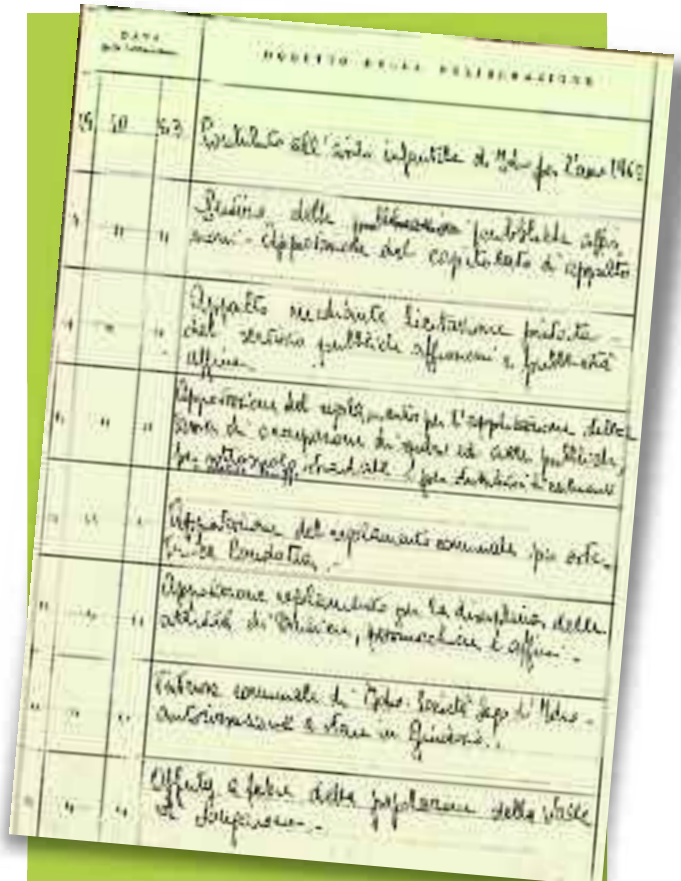 DATA
OGGETTO DELLA DELIBERAZIONE
10 63 Contributo all'asilo infantile di Idro per l'anno 1963
" " Servizio delle pubbliche affis
sioni - Approvazione del capitolato di appalto
" " " Appalto mediante licitazione privata -
del servizio pubbliche affissioni e pubblicità
affine
" " " Approvazione del regolamento per l'applicazione della
tassa di occupazione di spazi ed aree pubbliche,
per stradale e per distributori di carburanti
" " " Approvazione del regolamento comunale per oste-
trica Condotta -
" " " Approvazione regolamento per la disciplina delle
attività di barbiere, parrucchiere e affini -
" " " comunale di Idro - Società Lago d'Idro -
autorizzazione a stare in Giudizio.
" " " Offerta a favore della popolazione della Valle
di Longarone -